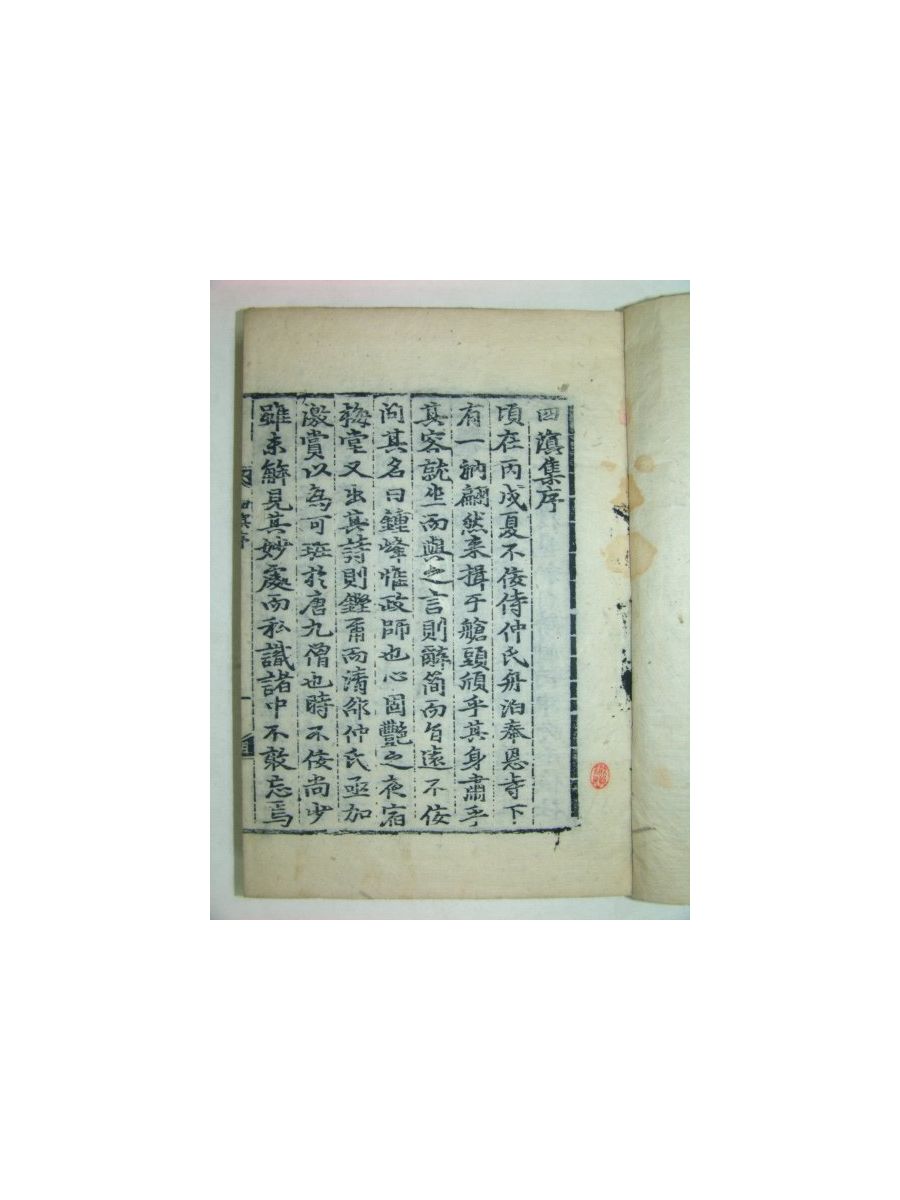 四溟集序
頃在丙戌夏不佞侍仲氏舟泊奉恩寺下
有一衲翩然來揖于艙頭頎乎其身肅乎
其容就坐而與之言則辭簡而旨遠不佞
問其名曰鍾峰惟政師也心固艶之夜宿
梅堂又出其詩則鏗爾而清邵仲氏亟加
激賞以爲可班於唐九僧也時不佞尚少
雖未解見其妙處而私識諸中不敢忘焉